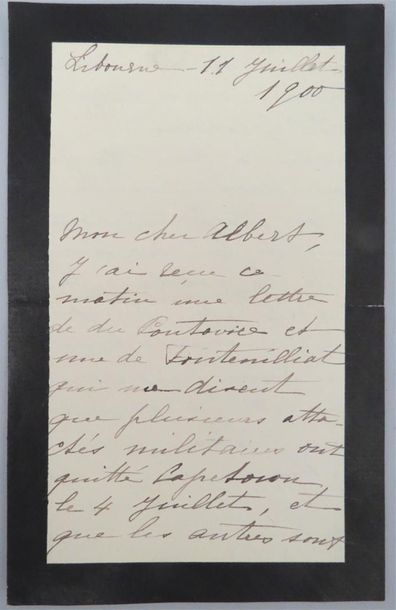 Libourne - 11 Juillet
1900
Mon cher Albert,
J'ai reçu ce
matin une lettre
de du Pontavice et
une de Fontenilliat
qui me disent
que plusieurs atta-
chés militaires ont
quitté Capetown
le 4 Juillet, et
que les autres sont